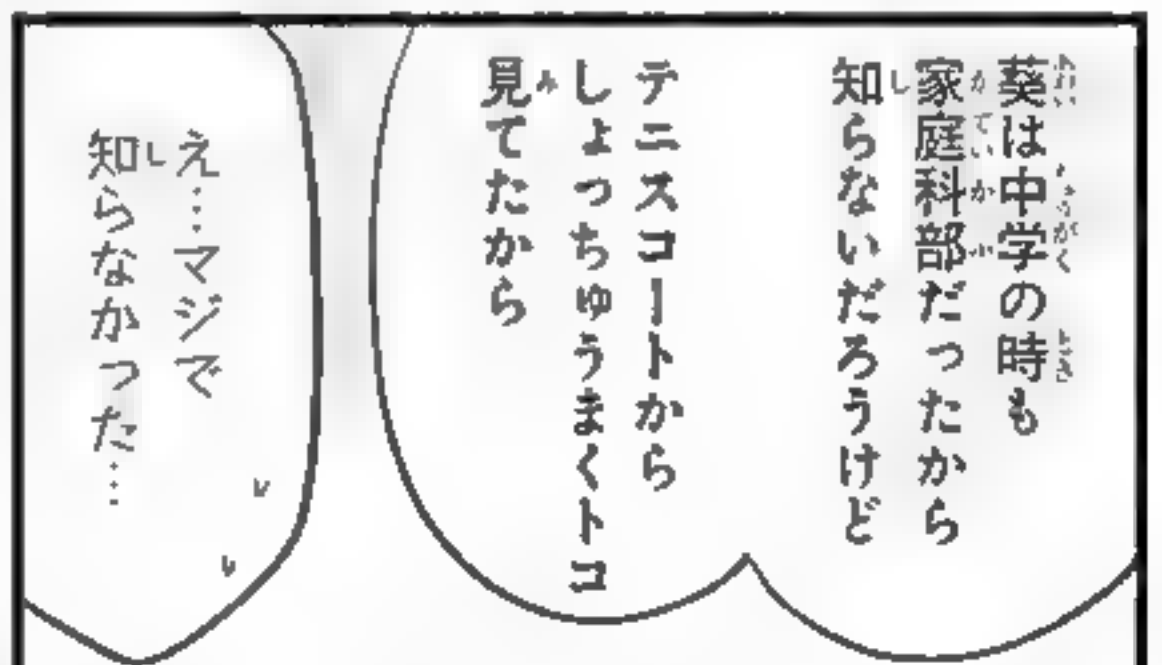 葵は中学の時も
家庭科部だったから
知らないだろうけど
テニスコートから
しょっちゅうまくトコ
見てたから
え…マジで
知らなかった…